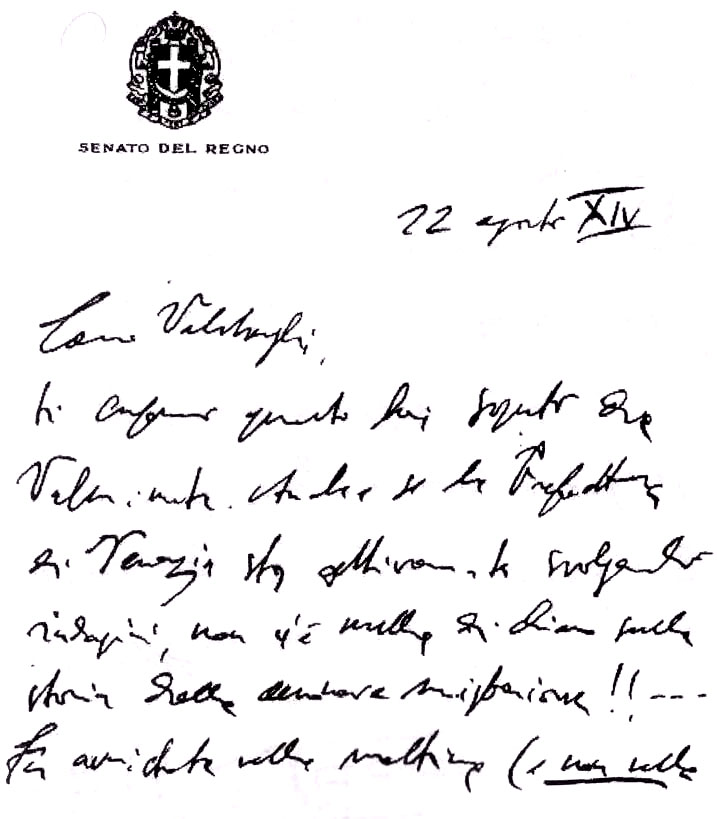 SENATO DEL REGNO
22 agosto XIV
Caro Valbonghi,
ti confermo quanto hai saputo da
Valminuta. Anche se la Prefettura
di Venezia sta attivam.te svolgendo
indagini, non c'è nulla di chiaro sulla
storia della aeronave misteriosa!! ---
Fu avvistata nella mattina (e non nella